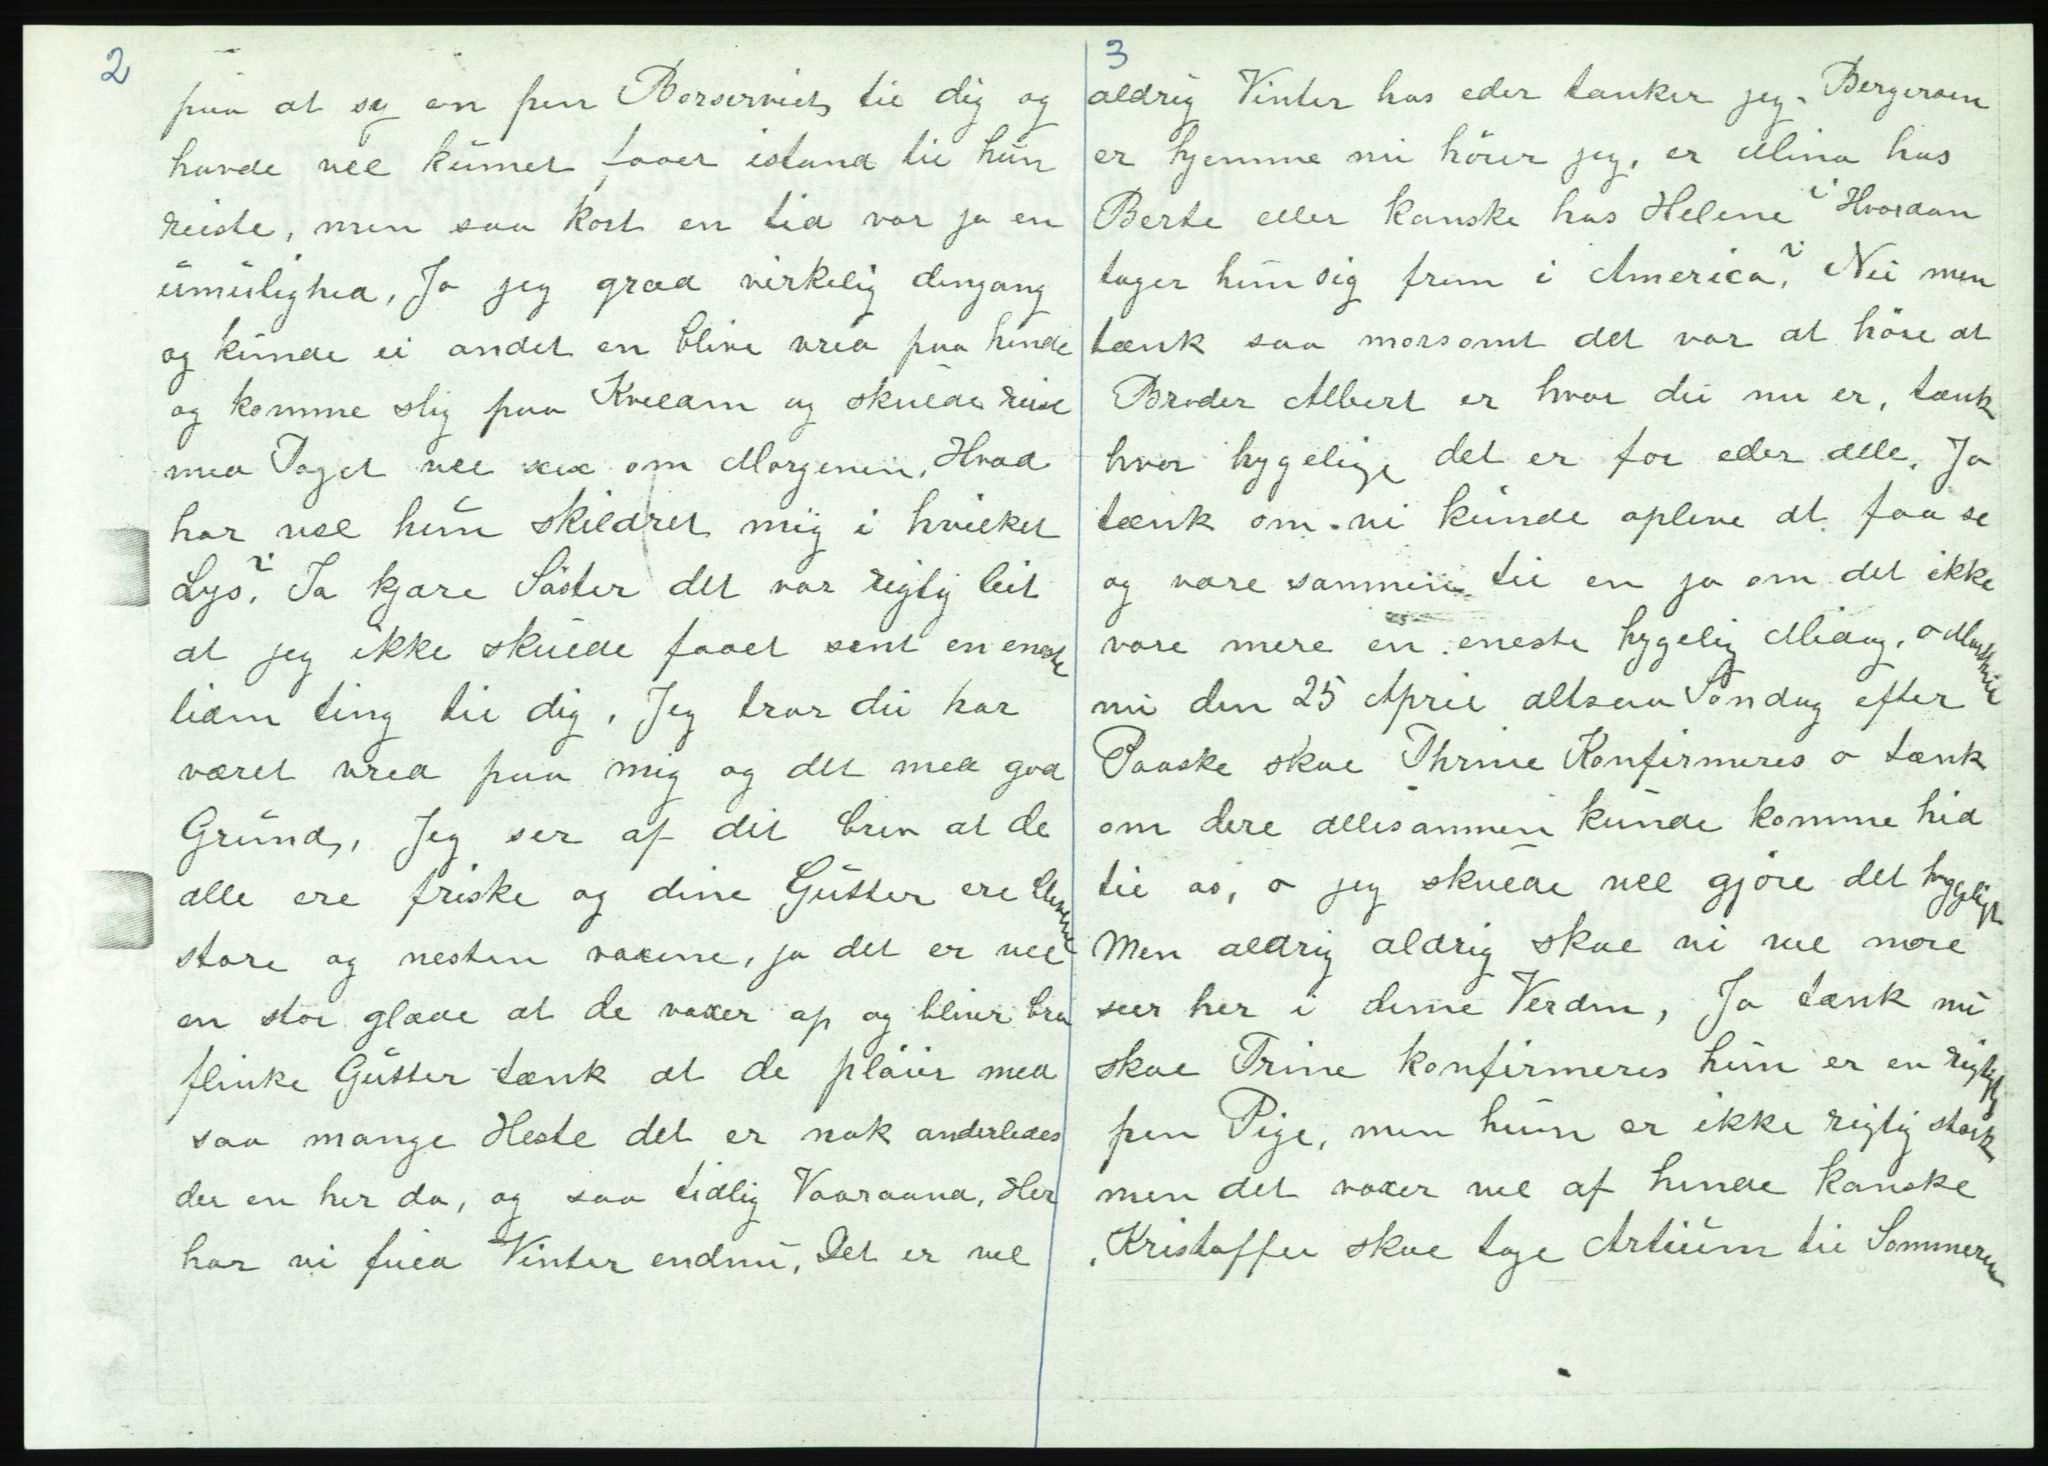 2
paa at sy en pen Borserviet til dig og
havde vel kunet faaet istand til hun
reiste, men saa kort en tid var ja en
umulighed, Ja jeg græd virkelig dengang
og kunde ei andet en blive vred paa hende
og komme slig paa Kvelden og skulde reise
med Toget vel sex om Morgenen, Hvad
har vel hun skildret mig i hvilket
Lys? Ja kjære Söster det var rigtig leit
at jeg ikke skulde faaet sent en eneste
liden ting til dig, Jeg tror du har
været vred paa mig og det med god
Grund, Jeg ser af dit brev at de
alle ere friske og dine Gutter ere blevene
store og nesten voxene, ja det er vel
en stor glæde at de voxer op og bliver bra
flinke Gutter tænk at de plöier med
saa mange Heste det er nok anderledes
der en her da, og saa tidlig Vaaraand, Her
har vi fuld Vinter endnu, Det er vel
3
aldrig Vinter hos eder tænker jeg. Bergersen
er hjemme nu hörer jeg, er Mina hos
Berte eller kanske hos Helene? Hvordan
tager hun sig frem i America? Nei men
tænk saa morsomt det var at höre at
Broder Albert er hvor du nu er, tænk
hvor hygelige det er for eder alle, Ja
tænk om vi kunde opleve at faa se
og være sammen til en ja om det ikke
være mere en eneste hygelig Midag, o
nu den 25 April altsaa Söndag efter
Paaske skal Thrine Konfirmeres o tænk
om dere allesammen kunde komme hid
til os, o jeg skulde vel gjöre det hyggeligt
Men aldrig aldrig skal vi vel mere
sees her i denne Verden, Ja tænk nu
skal Trine konfirmeres hun er en rigtig
pen Pige, men hun er ikke rigtig stærk
men det voxer vel af hende kanske
Kristoffer skal tage Artium til Sommeren